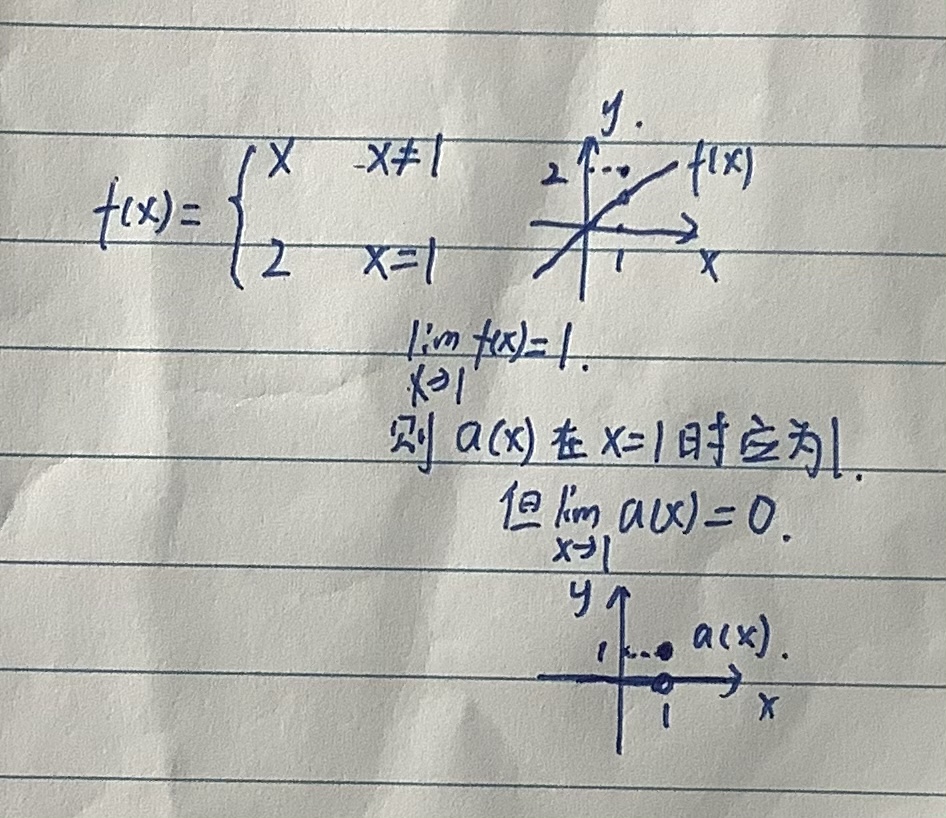 f(x) = { x x≠1
2 x=1
y.
2
f(x)
1
x
lim f(x)=1.
x→1
则 a(x) 在 x=1 时应为1.
但 lim a(x)=0.
x→1
y
1
a(x).
1
x